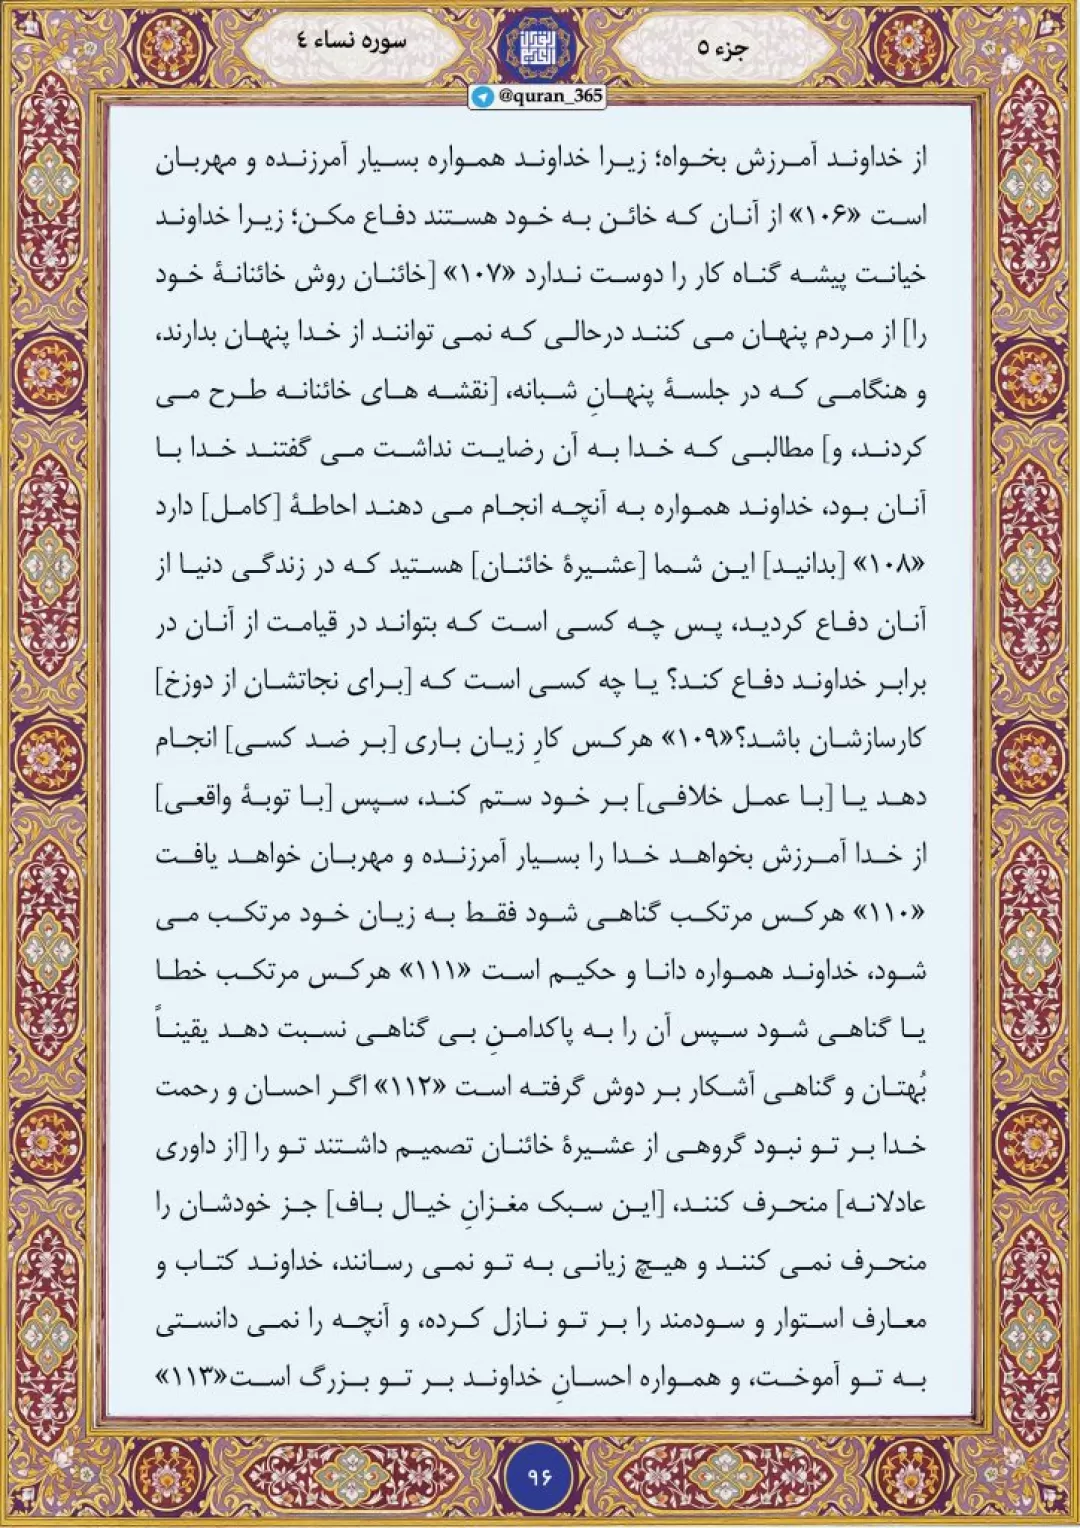 جزء ۵
سوره نساء ۴
@quran_365
از خداوند آمرزش بخواه؛ زیرا خداوند همواره بسیار آمرزنده و مهربان
است «۱۰۶» از آنان که خائن به خود هستند دفاع مکن؛ زیرا خداوند
خیانت پیشه گناه کار را دوست ندارد «۱۰۷» [خائنان روش خائنانهٔ خود
را] از مردم پنهان می کنند درحالی که نمی توانند از خدا پنهان بدارند،
و هنگامی که در جلسهٔ پنهانِ شبانه، [نقشه های خائنانه طرح می
کردند، و] مطالبی که خدا به آن رضایت نداشت می گفتند خدا با
آنان بود، خداوند همواره به آنچه انجام می دهند احاطهٔ [کامل] دارد
«۱۰۸» [بدانید] این شما [عشیرهٔ خائنان] هستید که در زندگی دنیا از
آنان دفاع کردید، پس چه کسی است که بتواند در قیامت از آنان در
برابر خداوند دفاع کند؟ یا چه کسی است که [برای نجاتشان از دوزخ]
کارسازشان باشد؟«۱۰۹» هرکس کارِ زیان باری [بر ضد کسی] انجام
دهد یا [با عمل خلافی] بر خود ستم کند، سپس [با توبهٔ واقعی]
از خدا آمرزش بخواهد خدا را بسیار آمرزنده و مهربان خواهد یافت
«۱۱۰» هرکس مرتکب گناهی شود فقط به زیان خود مرتکب می
شود، خداوند همواره دانا و حکیم است «۱۱۱» هرکس مرتکب خطا
یا گناهی شود سپس آن را به پاکدامنِ بی گناهی نسبت دهد یقیناً
بُهتان و گناهی آشکار بر دوش گرفته است «۱۱۲» اگر احسان و رحمت
خدا بر تو نبود گروهی از عشیرهٔ خائنان تصمیم داشتند تو را [از داوری
عادلانه] منحرف کنند، [این سبک مغزانِ خیال باف] جز خودشان را
منحرف نمی کنند و هیچ زیانی به تو نمی رسانند، خداوند کتاب و
معارف استوار و سودمند را بر تو نازل کرده، و آنچه را نمی دانستی
به تو آموخت، و همواره احسانِ خداوند بر تو بزرگ است«۱۱۳»
۹۶